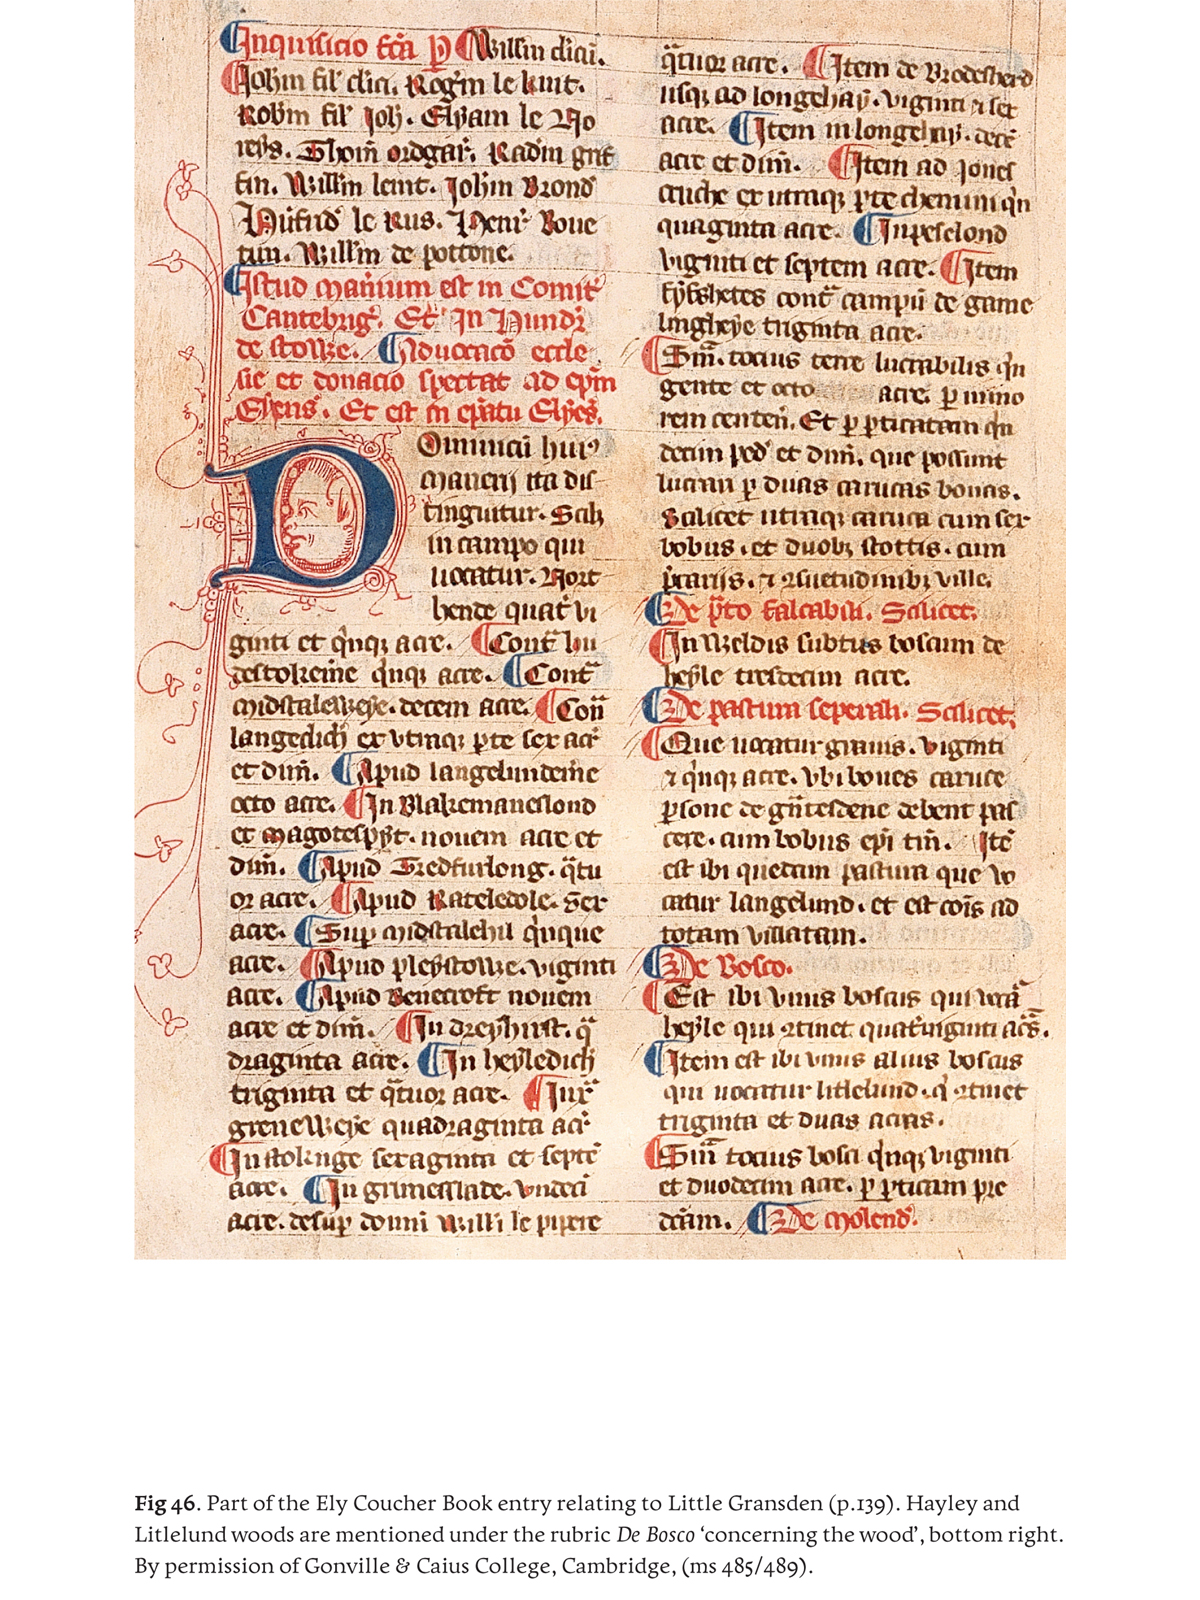 Inquisicio fcā p Willm clici.
Johm fil' clici. Rogm le knit.
Robm fil' Joh. Elyam le No
reys. Thom ordgar. Radm grif
fin. Willm lenit. Johm Brond
le Rus. Henr Boue
tun. Will'm de pottone.
Istud Manium est in Comit
Cantebrig. Et In Hundr
de stowe. Aduocacō eccle
sie et donacio spectat ad epm
Elyens. Et est in epatu Elyēs.
Dominicū huiꝰ
manerij ita dis
tinguitur. Scilȝ
in campo qui
uocatur. Nort
hende quat vi
ginti et qinqȝ acre. Cont bu
destokeme qinqȝ acre. Cont
midstaleweye. decem acre. Con
langedich ex vtraqȝ pte sex acr
et dim. Apud langelundeme
octo acre. In Blakemaneslond
et magotespyt. nouem acre et
dim. Apud Tredfurlong. qtu
or acre. Apud Ratelecole. Sex
acre. Sup midstalehil qinque
acre. Apud pleystowe. viginti
acre. Apud Benecroft nouem
acre et dim. In dreyhirst. q
draginta acre. In heyledich
triginta et qtuor acre. Iux
greneweye quadraginta acr
In stokinge sexaginta et septē
acre. In grimesslade. vndeci
acre. desup domū Willi le pipere
qtuor acre. Item de Brodesherd
usqȝ ad longehay. viginti ⁊ sex
acre. Item in longehay. decē
acre et dim. Item ad Jones
cruche ex utraqȝ pte chemini qn
quaginta acre. In peselond
viginti et septem acre. Item
fyfshetes cont campū de game
lingheye triginta acre.
Sm̄. tocius terre lucrabilis qn
gente et octo acre. p mino
rem centen. Et p pticatam qn
decim ped et dim. que possunt
lucrari p duas carucas bonas.
Scilicet utraqȝ caruca cum sex
bobus. et duobȝ stottis. cum
pcariis. ⁊ ꝯsuetudinibȝ ville.
De pto falcabili. Scilicet.
In Weldis subtus boscum de
heyle tresdecim acre.
De pastura seperali. Scilicet.
Que uocatur grauis. viginti
⁊ qinqȝ acre. vbi boues caruce
psone de gntesdene debent pas
cere. cum bobus epi tm. Itē
est ibi quedam pastura que vo
catur langelund. et est cois ad
totam villatam.
De Bosco.
Est ibi vnus boscus qui vocā
heyle qui ꝯtinet quatuiginti acs.
Item est ibi vnus alius boscus
qui uocatur litlelund. q ꝯtinet
triginta et duas acras.
Sm̄ tocius bosci qinqȝ viginti
et duodecim acre. p pticam pre
dcam. De Molend.
Fig 46. Part of the Ely Coucher Book entry relating to Little Gransden (p.139). Hayley and
Litlelund woods are mentioned under the rubric De Bosco ‘concerning the wood’, bottom right.
By permission of Gonville & Caius College, Cambridge, (ms 485/489).